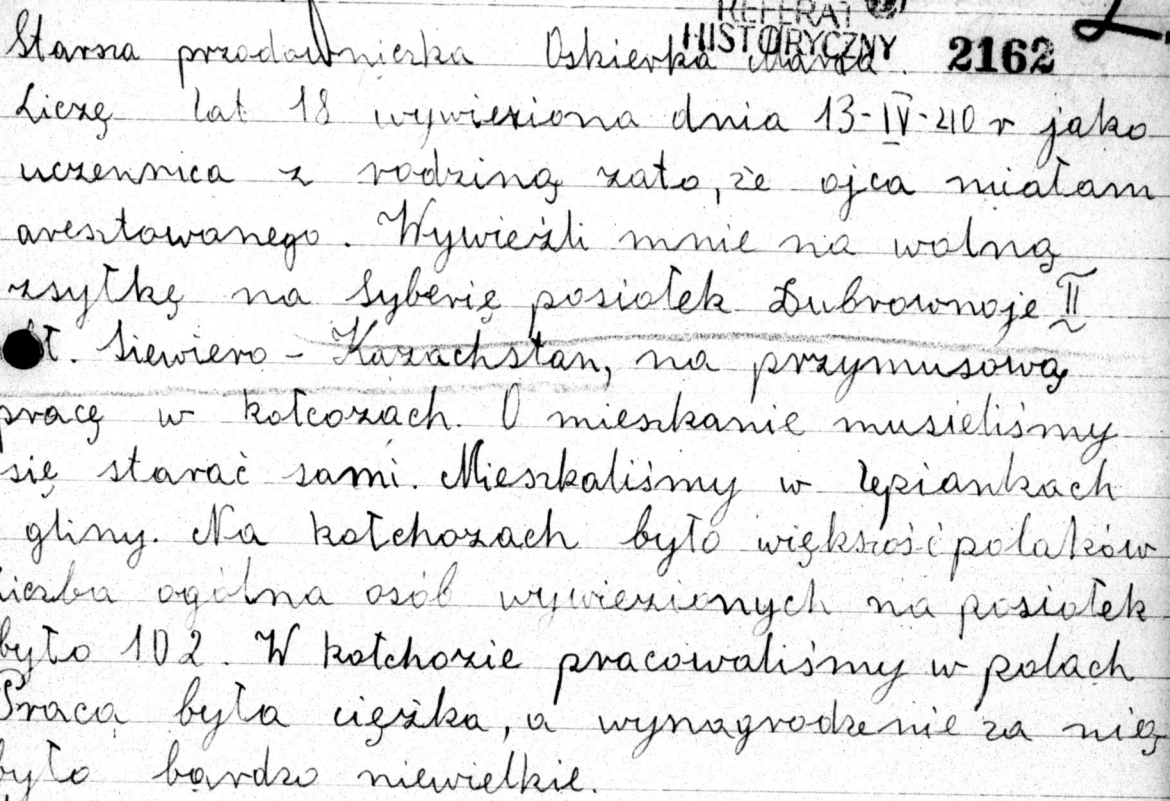 REFERAT
HISTORYCZNY
2162
2.
Starsza przodowniczka Oskierka Maria.
Liczę lat 18 wywieziona dnia 13-IV-40 r jako
uczennica z rodziną zato, że ojca miałam
aresztowanego. Wywieźli mnie na wolną
zsyłkę na Syberię posiołek Dubrownoje II
Siewiero - Kazachstan, na przymusową
pracę w kołcozach. O mieszkanie musieliśmy
się starać sami. Mieszkaliśmy w lepiankach
gliny. Na kołchozach było większość polaków
liczba ogólna osób wywiezionych na posiołek
było 102. W kołchozie pracowaliśmy w polach
Praca była ciężka, a wynagrodzenie za nią
było bardzo niewielkie.